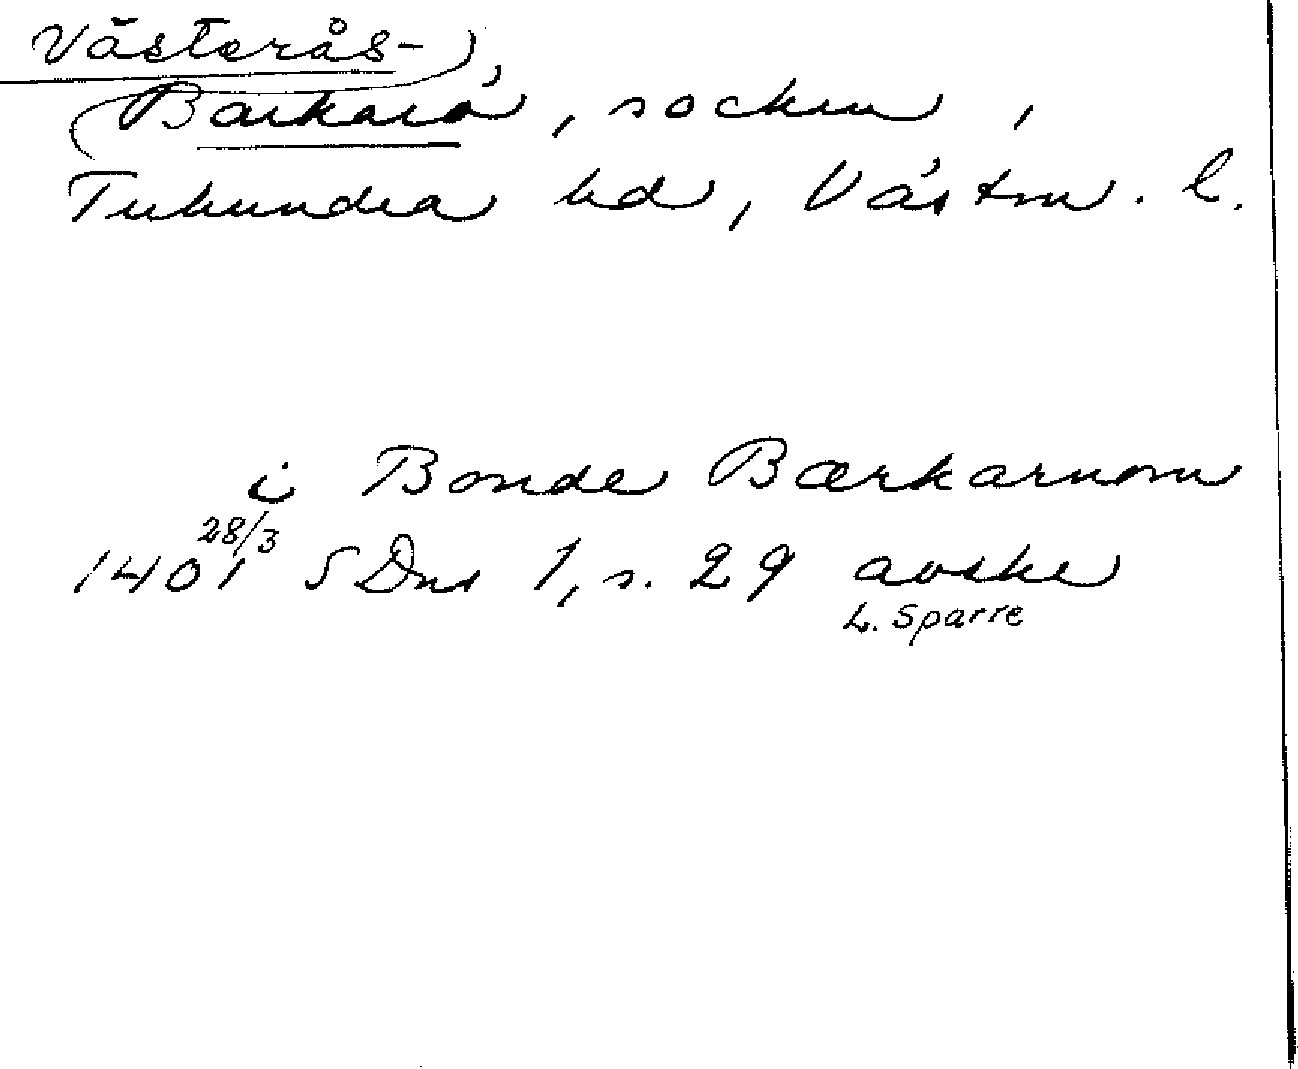 Västerås-
Barkarö, socken,
Tuhundra hd, Västm. l.
i Bonde Bærkarnom
28/3
1401 SDns 1, s. 29 avskr
L. Sparre